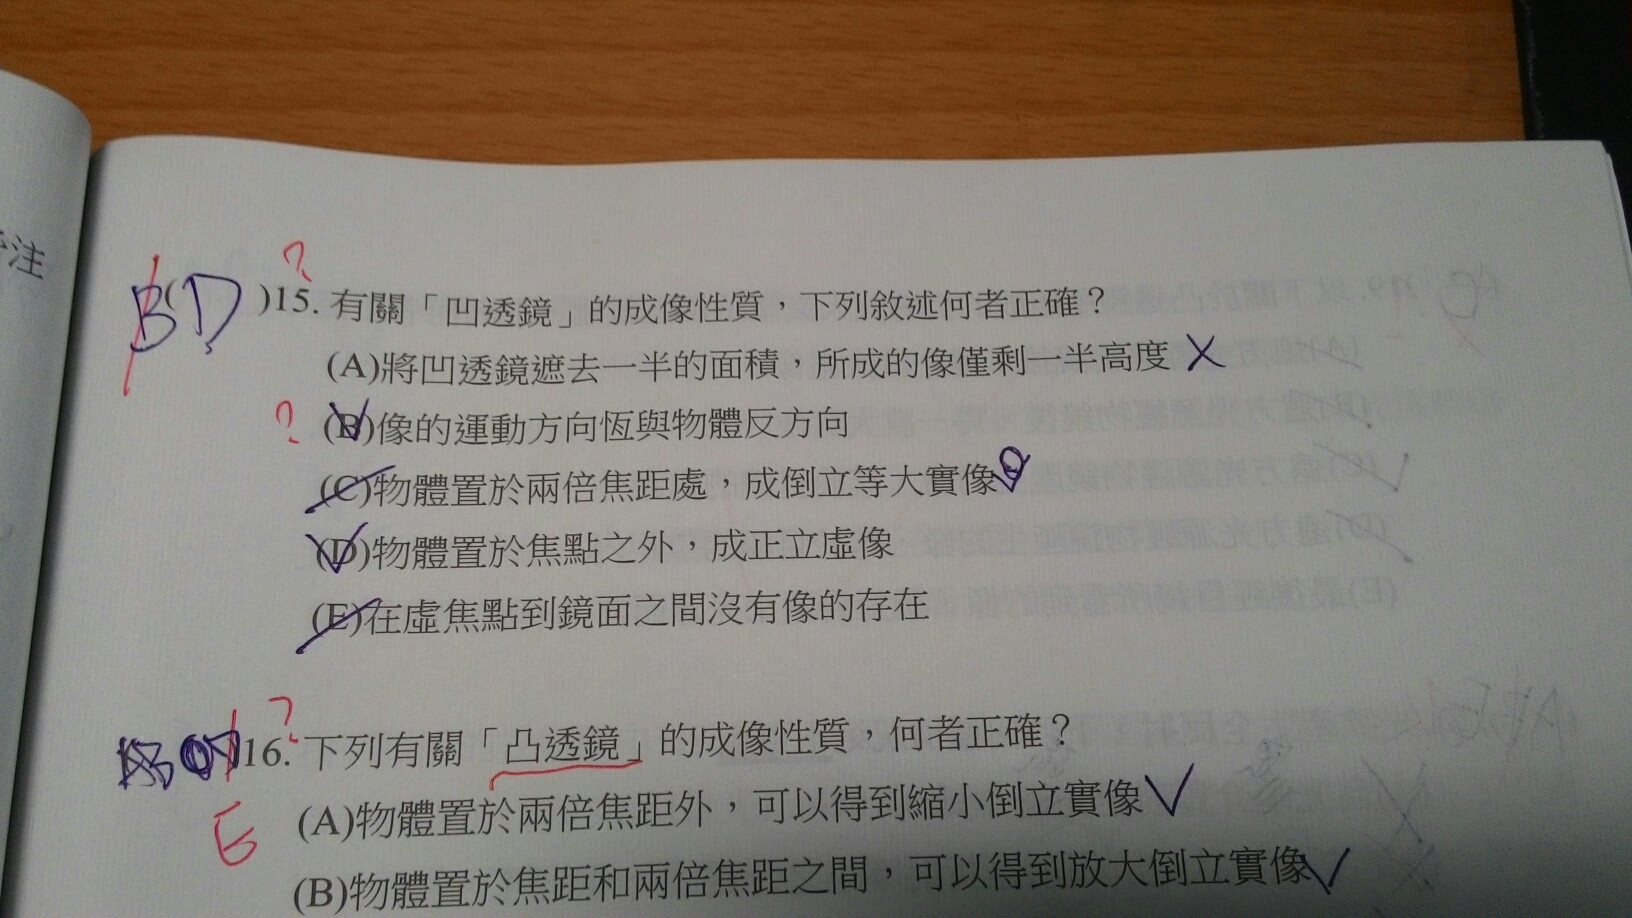 注
B(D)15. 有關「凹透鏡」的成像性質，下列敘述何者正確？
(A)將凹透鏡遮去一半的面積，所成的像僅剩一半高度
?(B)像的運動方向恆與物體反方向
(C)物體置於兩倍焦距處，成倒立等大實像
(D)物體置於焦點之外，成正立虛像
(E)在虛焦點到鏡面之間沒有像的存在
?
)16. 下列有關「凸透鏡」的成像性質，何者正確？
E
(A)物體置於兩倍焦距外，可以得到縮小倒立實像
(B)物體置於焦距和兩倍焦距之間，可以得到放大倒立實像